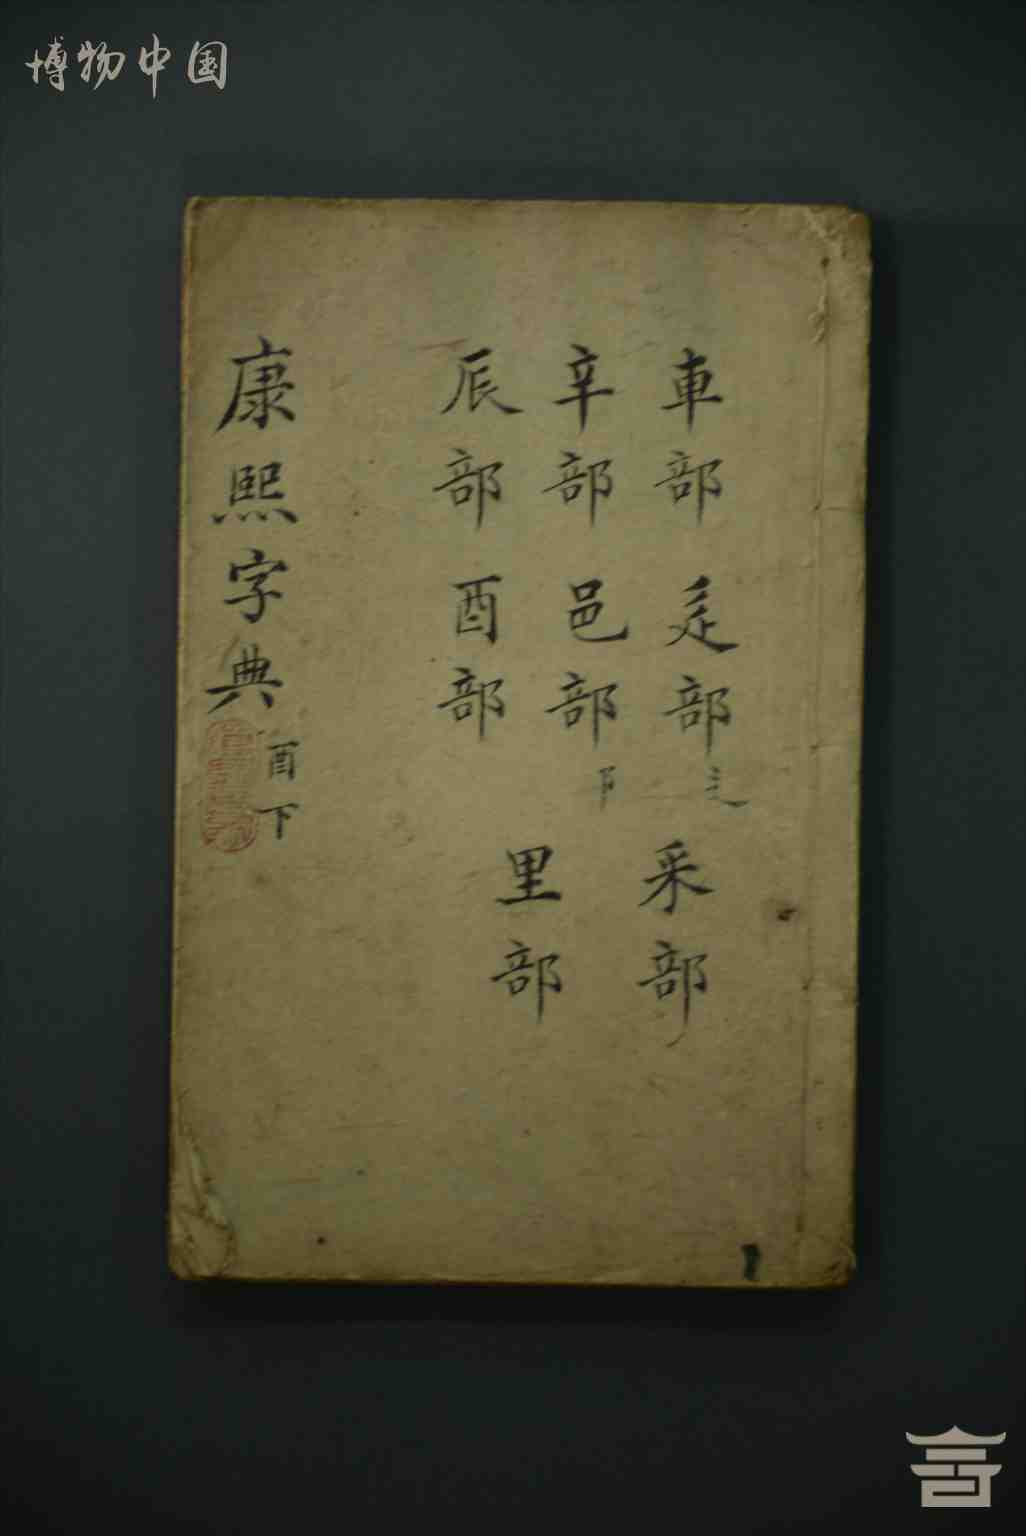 博物中国
車部
辵部
辶
釆部
辛部
邑部
阝
里部
辰部
酉部
康熙字典
酉下